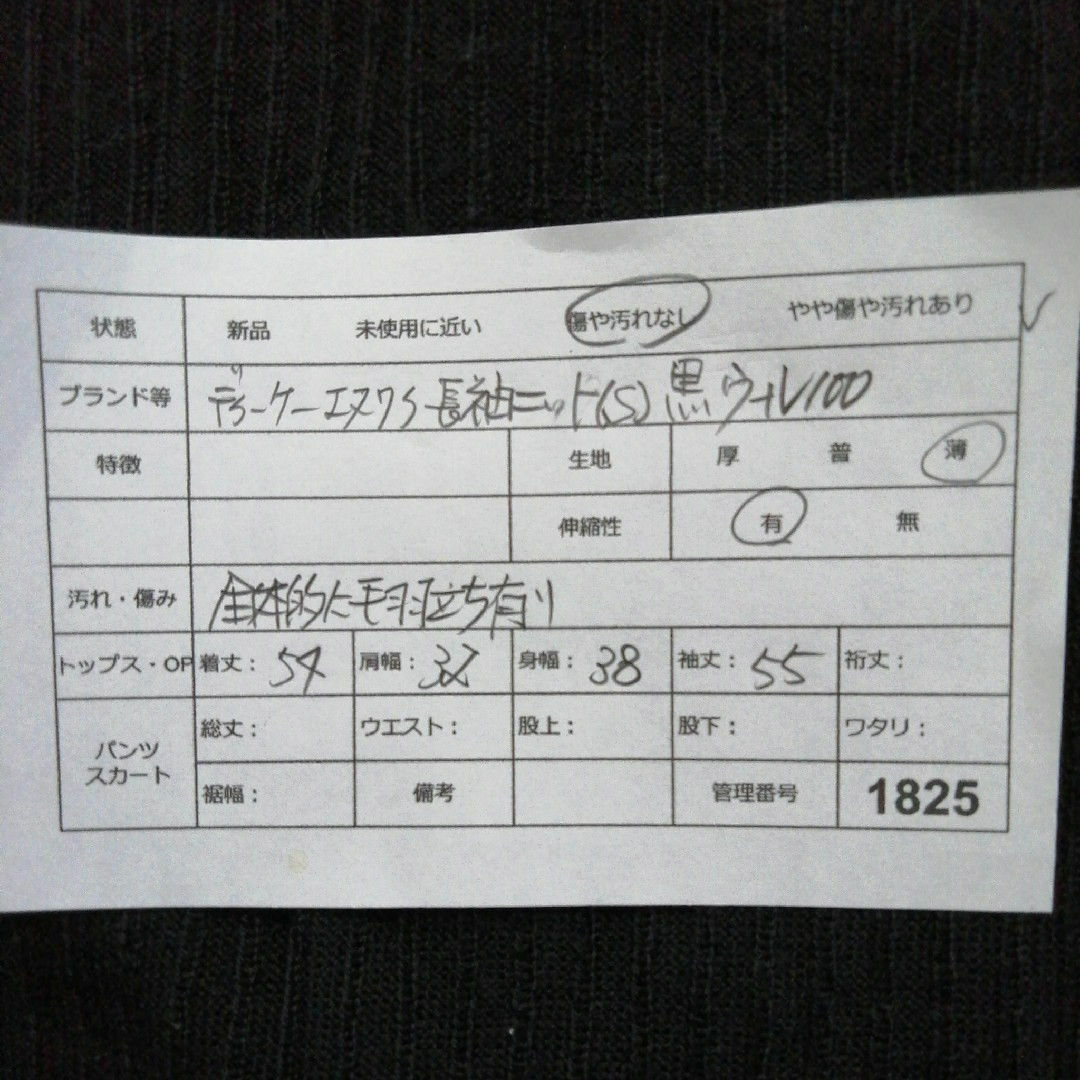 状態 新品 未使用に近い 傷や汚れなし やや傷や汚れあり
ブランド等 ディーケーエヌワイ 長袖ニット(S) 黒 ウール100
特徴 生地 厚 普 薄
伸縮性 有 無
汚れ・傷み 全体的に毛羽立ち有り
トップス・OP 着丈: 54 肩幅: 32 身幅: 38 袖丈: 55 裄丈:
パンツ 総丈: ウエスト: 股上: 股下: ワタリ:
スカート 裾幅: 備考 管理番号 1825